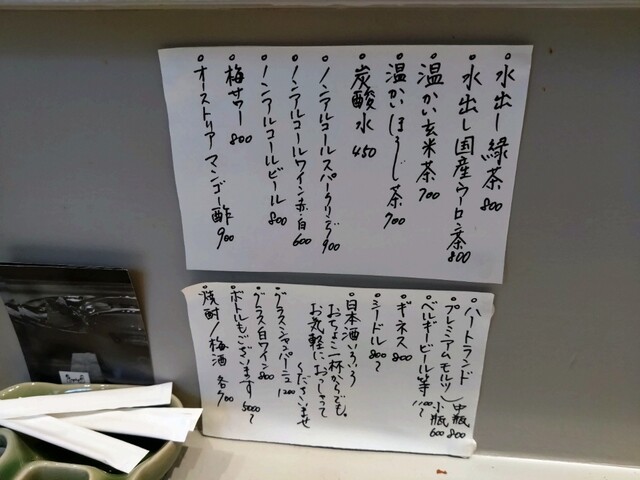 水出し緑茶 800
水出し国産ウーロン茶 800
温かい玄米茶 700
温かいほうじ茶 700
炭酸水 450
ノンアルコールスパークリング 900
ノンアルコールワイン赤・白 600
ノンアルコールビール 800
梅サワー 800
オーストリアマンゴー酢 900
ハートランド
プレミアムモルツ
中瓶 800
小瓶 600
ベルギービール等 1100〜
ギネス 800
シードル 800〜
日本酒いろいろ
おちょこ一杯からでも。
お気軽におっしゃって
くださいませ
グラスシャンパーニュ 1200
グラス白ワイン 800
ボトルもございます 5000〜
焼酎/梅酒 各700